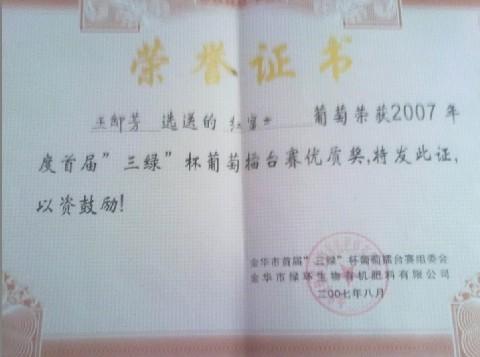 荣誉证书
选送的 葡萄荣获2007年
度首届"三绿"杯葡萄擂台赛优质奖,特发此证,
以资鼓励!
金华市首届"三绿"杯葡萄擂台赛组委会
金华市绿环生物有机肥料有限公司
二00七年八月